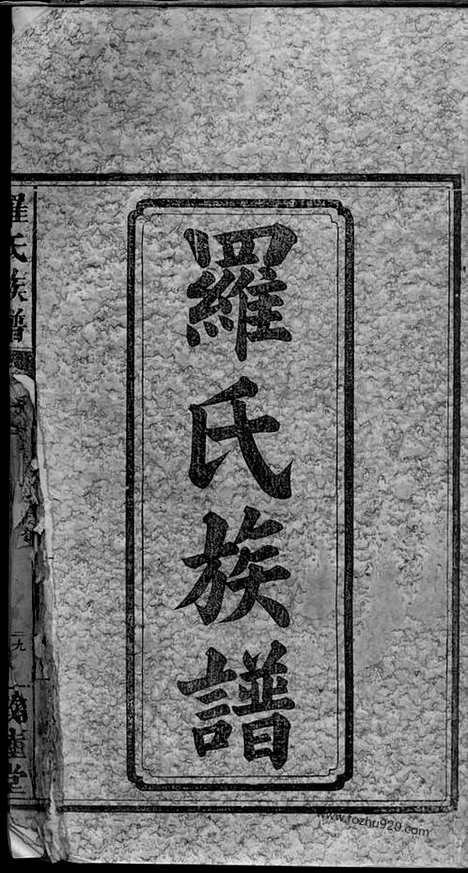 羅氏族譜
羅氏族譜
九
堂
www.fozhu920.com